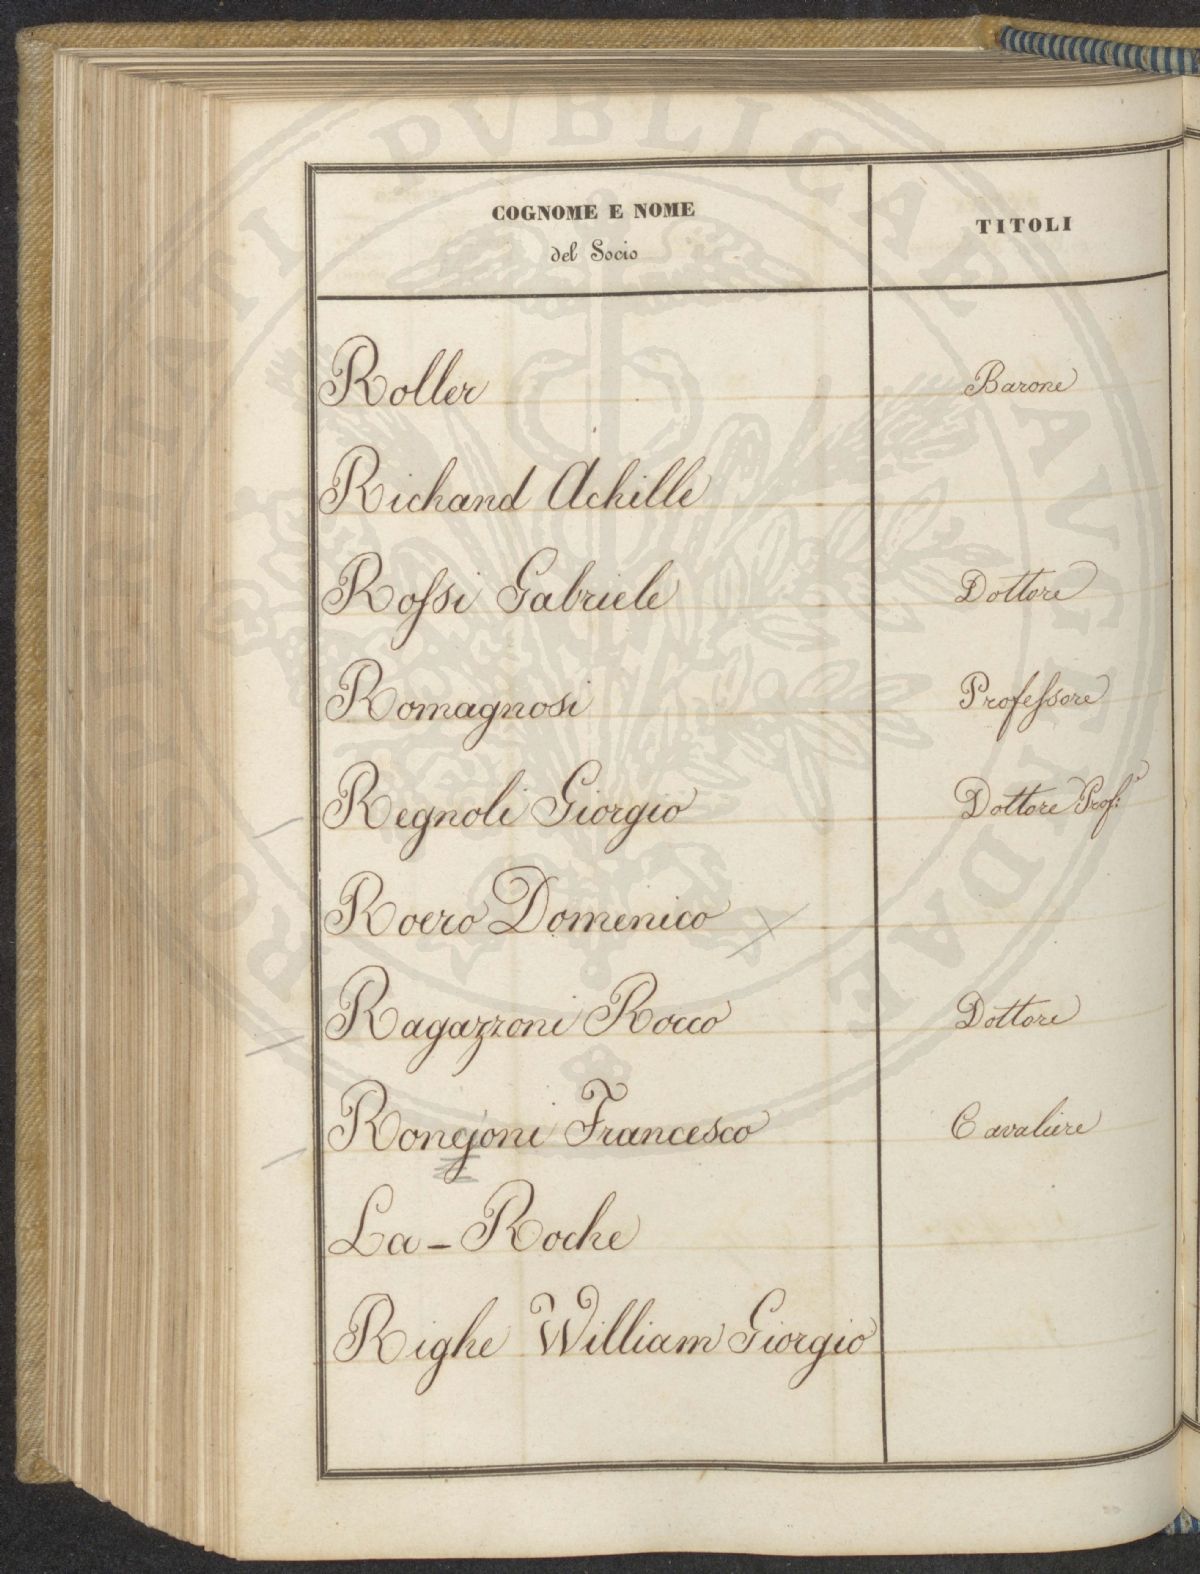 COGNOME E NOME
del Socio
TITOLI
Roller Barone
Richand Achille
Roſsi Gabriele Dottore
Romagnosi Profeſsore
Regnoli Giorgio Dottore Prof:r
Roero Domenico
Ragazzoni Rocco Dottore
Roncjoni Francesco Cavaliere
La - Roche
Righe William Giorgio